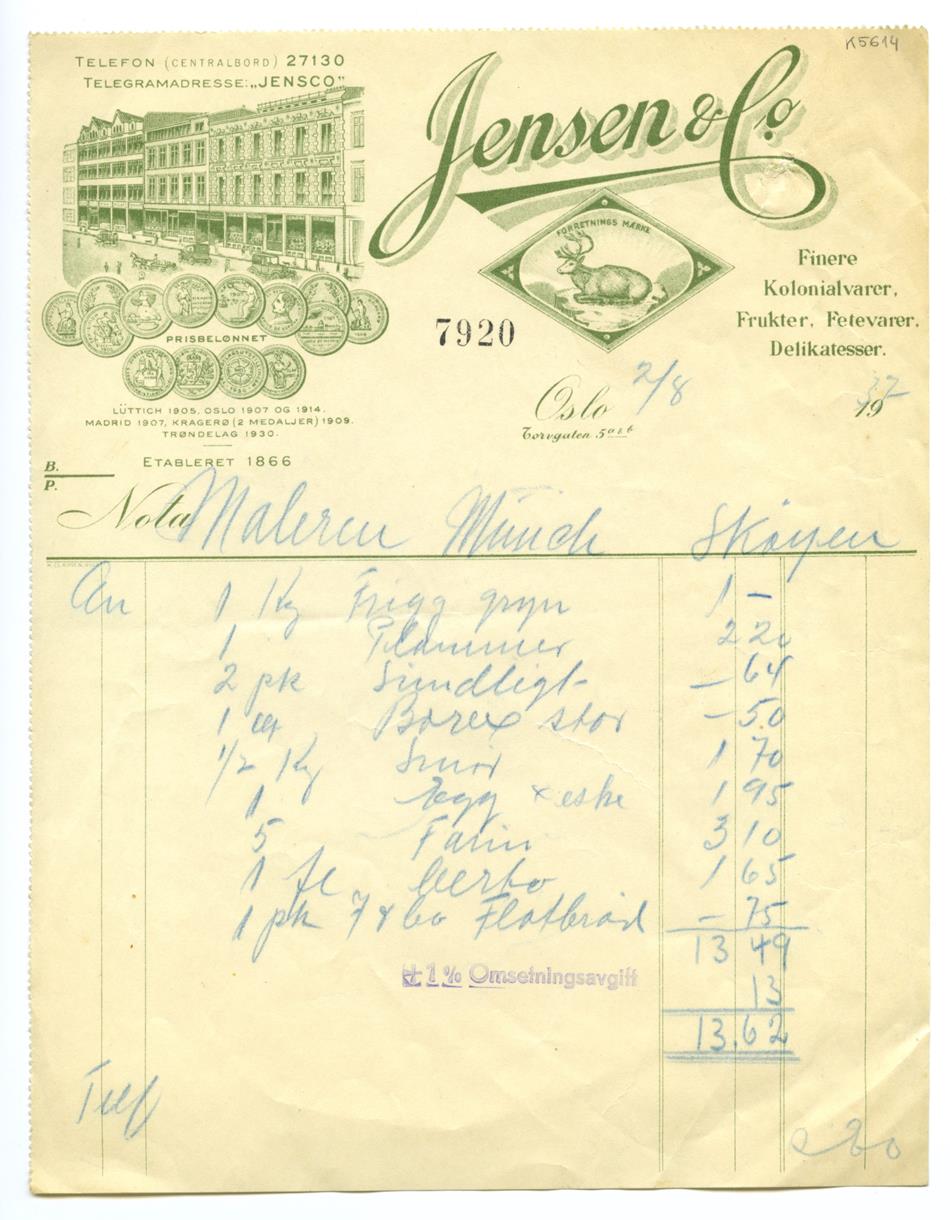 K5614
TELEFON (CENTRALBORD) 27130
TELEGRAMADRESSE: „JENSCO"
Jensen & Co.
FORRETNINGS MÆRKE
Finere
Kolonialvarer,
Frukter, Fetevarer,
Delikatesser.
PRISBELØNNET
7920
LÜTTICH 1905, OSLO 1907 OG 1914,
MADRID 1907, KRAGERØ (2 MEDALJER) 1909.
TRØNDELAG 1930.
Oslo 2/8 1937
Torvgaten 5 a & b
ETABLERET 1866
B.
P.
Nota Maleren Münch Skøyen
An 1 Kg Frigg gryn 1 -
1 Plommer 2 20
2 pk Sundligt - 64
1 Borax stor - 50
1/2 Kg Smør 1 70
1 Egg + eske 1 95
5 Farin 3 10
1 fl 1 65
1 pk Flatbrød - 75
13 49
+ 1 % Omsetningsavgift
13
13.62
Telf